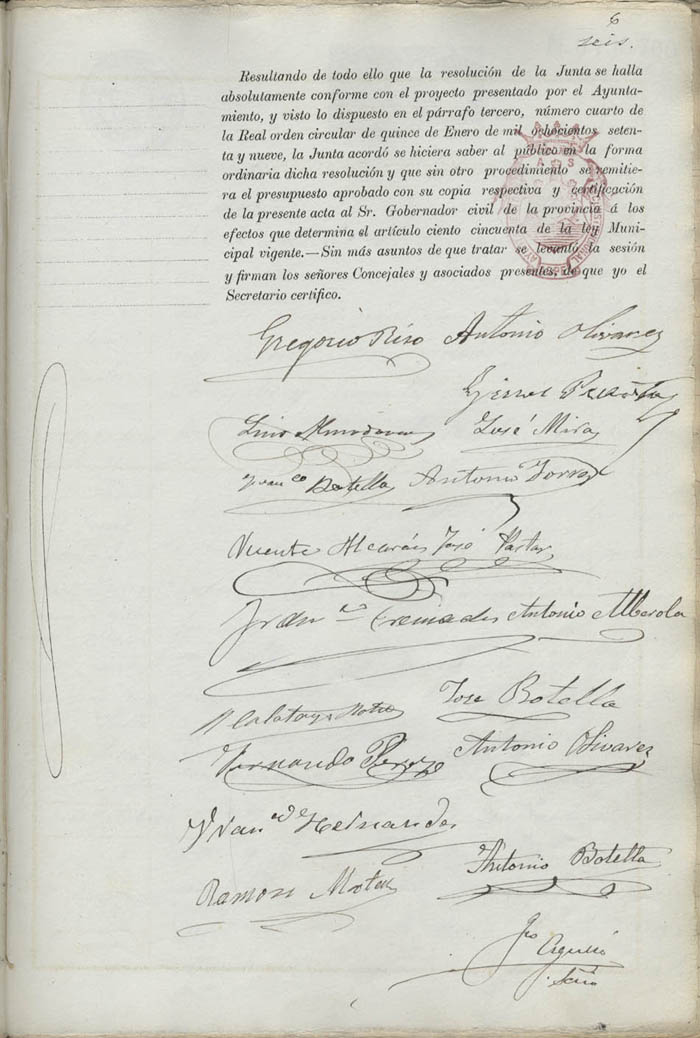 6
seis.
Resultando de todo ello que la resolución de la Junta se halla
absolutamente conforme con el proyecto presentado por el Ayunta-
miento, y visto lo dispuesto en el párrafo tercero, número cuarto de
la Real orden circular de quince de Enero de mil ochocientos seten-
ta y nueve, la Junta acordó se hiciera saber al público en la forma
ordinaria dicha resolución y que sin otro procedimiento se remitie-
ra el presupuesto aprobado con su copia respectiva y certificación
de la presente acta al Sr. Gobernador civil de la provincia á los
efectos que determina el artículo ciento cincuenta de la ley Muni-
cipal vigente.—Sin más asuntos de que tratar se levantó la sesión
y firman los señores Concejales y asociados presentes, de que yo el
Secretario certifico.
Gregorio Antonio Olivares
Ginés
José Mira
Franco Botella Antonio Torres
Vicente Alcaráz José Pastor
Franco Cremades Antonio Alberola
José Botella
Fernando Pérez Antonio Olivares
Hernandez
Ramon Antonio Botella
Srio